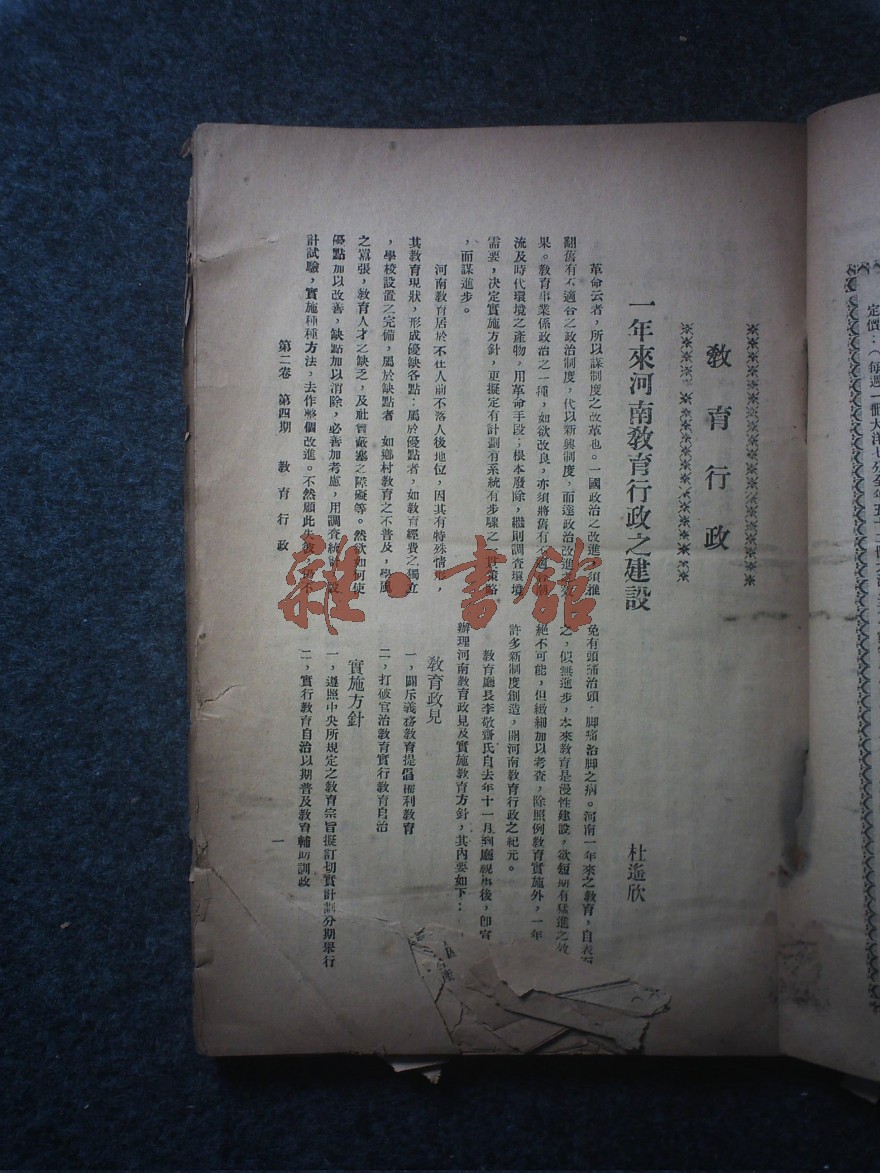 教育行政
一年來河南教育行政之建設
杜遙欣
革命云者，所以謀制度之改革也。一國政治之改進，須推
翻舊有不適合之政治制度，代以新興制度，而達政治改進之效
果。教育事業係政治之一種，如欲改良，亦須將舊有不適
流及時代環境之產物，用革命手段；根本廢除，繼則調查環境
需要，決定實施方針，更擬定有計劃有系統有步驟之策略
，而謀進步。
河南教育居於不在人前不落人後地位，因其有特殊情形，
其教育現狀，形成優缺各點：屬於優點者，如教育經費之獨立
，學校設置之完備，屬於缺點者 如鄉村教育之不普及，學風
之囂張，教育人才之缺乏，及社會蔽塞之障礙等。然欲如何使
優點加以改善，缺點加以消除，必善加考慮，用調查統
計試驗，實施種種方法，去作整個改進。不然顧此失彼
免有頭痛治頭，脚痛治脚之病。河南一年來之教育，自表面
之，似無進步，本來教育是漫性建設，欲短期有猛進之效
絕不可能，但緻細加以考查，除照例教育實施外，一年
許多新制度創造，開河南教育行政之紀元。
教育廳長李敬齋氏自去年十一月到廳視事後，即宣
辦理河南教育政見及實施教育方針，其內要如下：
教育政見
一，闢斥義務教育提倡權利教育
二，打破官治教育實行教育自治
實施方針
一，遵照中央所規定之教育宗旨擬訂切實計劃分期舉行
二，實行教育自治以期普及教育輔助訓政
第二卷 第四期 教育行政
一
定價：（每週一冊大洋七分全年五十二冊
雜·書館